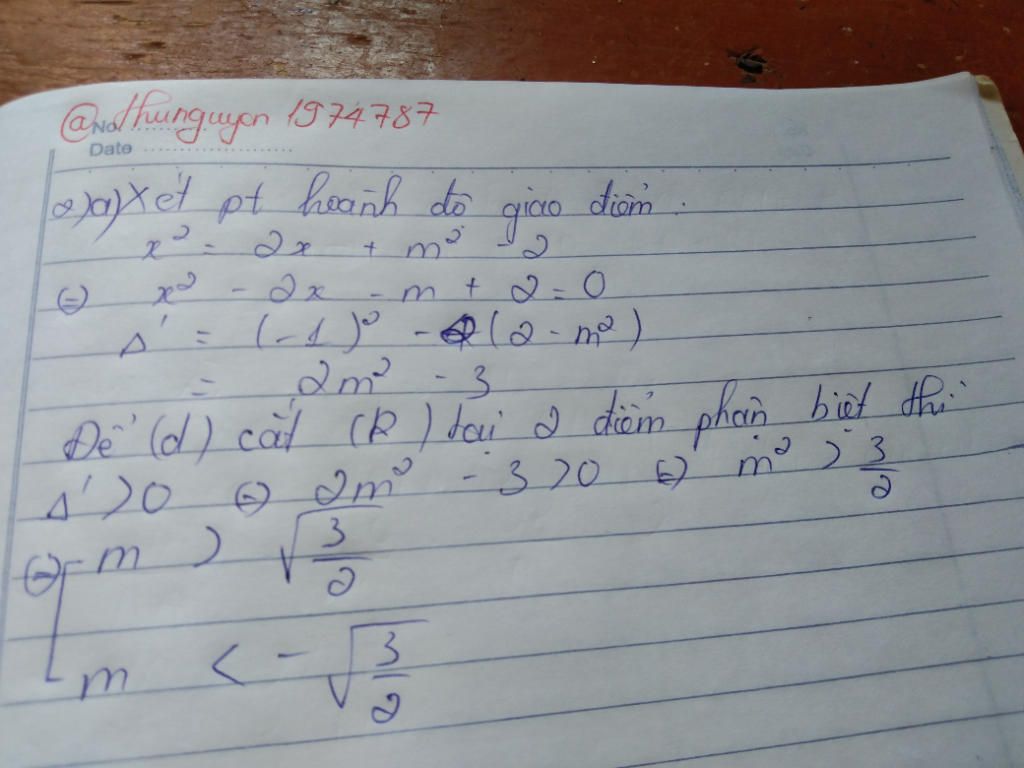 @thunguyen 1974787
No.
Date
2)a) Xét pt hoành độ giao điểm:
x² = 2x + m² - 2
⇔ x² - 2x - m + 2 = 0
Δ' = (-1)² - (2 - m²)
= 2m² - 3
Để (d) cắt (P) tại 2 điểm phân biệt thì
Δ' > 0 ⇔ 2m² - 3 > 0 ⇔ m² > 3/2
⇔ [ m > √(3/2)
m < - √(3/2)